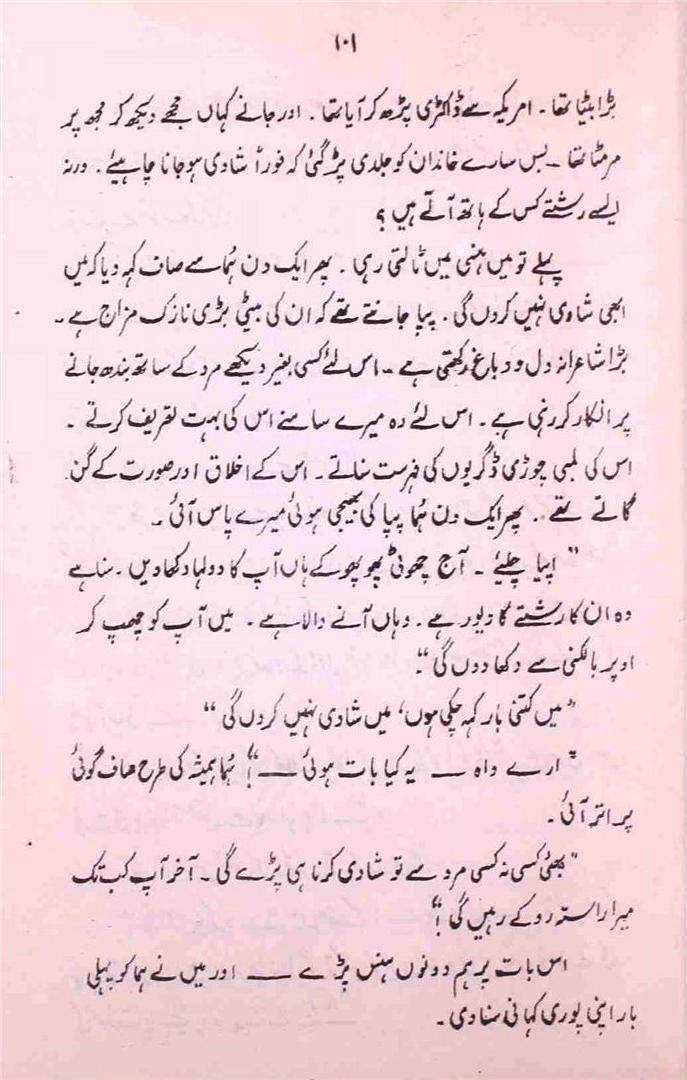 ۱۰۱
بڑا بیٹا تھا ۔ امریکہ سے ڈاکٹری پڑھ کر آیا تھا ۔ اور جانے کہاں مجھے دیکھ کر مجھ پر
مر مٹا تھا ــ بس سارے خاندان کو جلدی پڑ گئی کہ فوراً شادی ہو جانا چاہیئے ۔ ورنہ
ایسے رشتے کس کے ہاتھ آتے ہیں ؟
پہلے تو میں ہنسی میں ٹالتی رہی ۔ پھر ایک دن ہُما سے صاف کہہ دیا کہ میں
ابھی شادی نہیں کروں گی ۔ پپا جانتے تھے کہ ان کی بیٹی بڑی نازک مزاج ہے ۔
بڑا شاعرانہ دل و دماغ رکھتی ہے ــ اس لئے کسی بغیر دیکھے مرد کے ساتھ بندھ جانے
پر انکار کر رہی ہے ۔ اس لئے وہ میرے سامنے اس کی بہت تعریف کرتے ۔
اس کی لمبی چوڑی ڈگریوں کی فہرست سناتے ۔ اس کے اخلاق اور صورت کے گن
گاتے تھے ۔ پھر ایک دن ہُما پپا کی بھیجی ہوئی میرے پاس آئی ۔
" اپیا چلیئے ۔ آج چھوٹی پھوپھو کے ہاں آپ کا دولہا دکھا دیں ۔ سنا ہے
وہ ان کا رشتے کا دیور ہے ۔ وہاں آنے والا ہے ۔ میں آپ کو چھپ کر
اوپر بالکنی سے دکھا دوں گی ۔"
" میں کتنی بار کہہ چکی ہوں ، میں شادی نہیں کروں گی "
" ارے واہ ــ یہ کیا بات ہوئی ــ ؟" ہُما ہمیشہ کی طرح صاف گوئی
پر اتر آئی ۔
" بھئی کسی نہ کسی مرد سے تو شادی کرنا ہی پڑے گی ۔ آخر آپ کب تک
میرا راستہ روکے رہیں گی ؟"
اس بات پر ہم دونوں ہنس پڑے ــ اور میں نے ہما کو پہلی
بار اپنی پوری کہانی سنا دی ۔